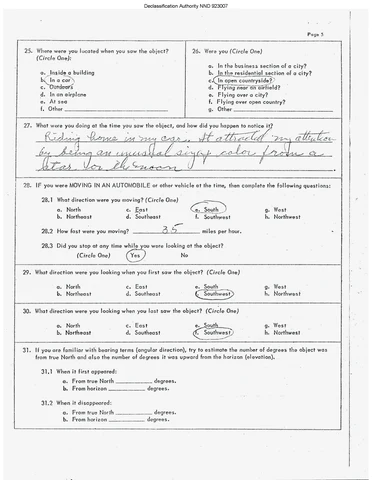 Declassification Authority NND 923007
Page 5
25. Where were you located when you saw the object?
(Circle One):
a. Inside a building
b. In a car
c. Outdoors
d. In an airplane
e. At sea
f. Other
26. Were you (Circle One)
a. In the business section of a city?
b. In the residential section of a city?
c. In open countryside?
d. Flying near an airfield?
e. Flying over a city?
f. Flying over open country?
g. Other
27. What were you doing at the time you saw the object, and how did you happen to notice it?
Riding home in my car. It attracted my attention
by being an unusual size & color from a
star or the moon
28. IF you were MOVING IN AN AUTOMOBILE or other vehicle at the time, then complete the following questions:
28.1 What direction were you moving? (Circle One)
a. North c. East e. South g. West
b. Northeast d. Southeast f. Southwest h. Northwest
28.2 How fast were you moving? 35 miles per hour.
28.3 Did you stop at any time while you were looking at the object?
(Circle One) Yes No
29. What direction were you looking when you first saw the object? (Circle One)
a. North c. East e. South g. West
b. Northeast d. Southeast f. Southwest h. Northwest
30. What direction were you looking when you last saw the object? (Circle One)
a. North c. East e. South g. West
b. Northeast d. Southeast f. Southwest h. Northwest
31. If you are familiar with bearing terms (angular direction), try to estimate the number of degrees the object was
from true North and also the number of degrees it was upward from the horizon (elevation).
31.1 When it first appeared:
a. From true North degrees.
b. From horizon degrees.
31.2 When it disappeared:
a. From true North degrees.
b. From horizon degrees.